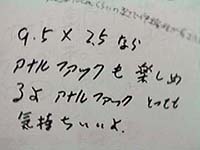 9.5×2.5なら
アナルファックも楽しめ
るよ アナルファック とっても
気持ちいいよ.